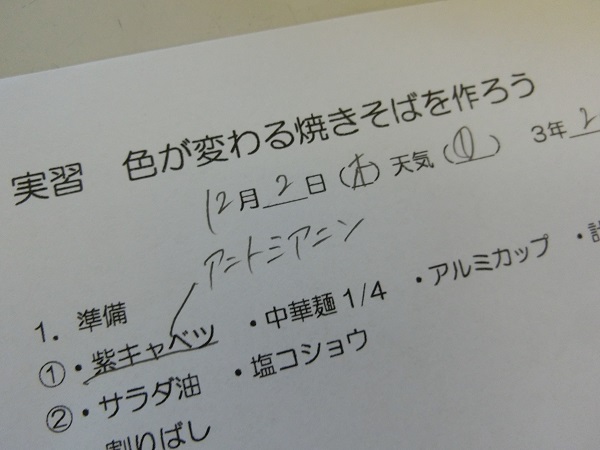 実習　色が変わる焼きそばを作ろう
12月2日(木)天気(①)　3年2
アニトミアニン
1．準備
①・紫キャベツ　・中華麺1/4　・アルミカップ　・計
②・サラダ油　・塩コショウ
割りばし